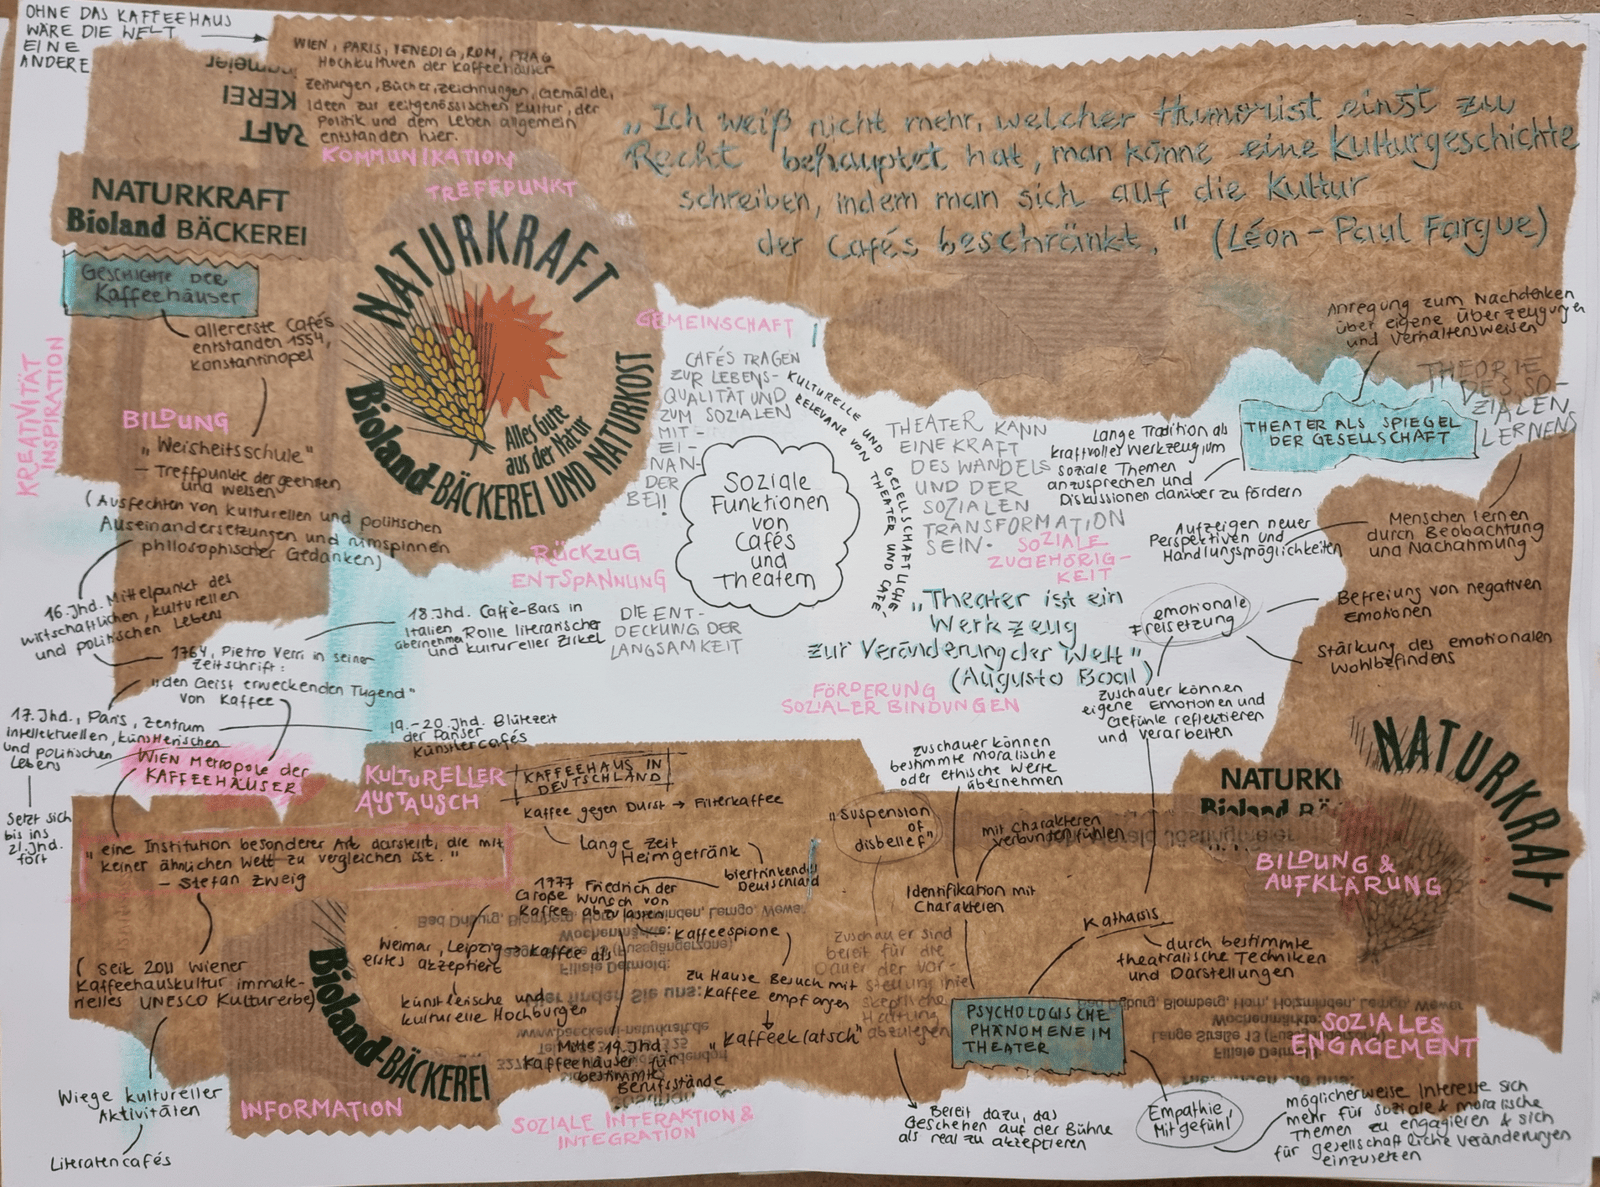 OHNE DAS KAFFEEHAUS
WÄRE DIE WELT
EINE
ANDERE
WIEN, PARIS, VENEDIG, ROM, PRAG
Hochkulturen der Kaffeehäuser
Zeitungen, Bücher, Zeichnungen, Gemälde,
Ideen zur zeitgenössischen Kultur, der
Politik und dem Leben allgemein
entstanden hier.
KEREI
RAFT
KOMMUNIKATION
TREFFPUNKT
„Ich weiß nicht mehr, welcher Humorist einst zu
Recht behauptet hat, man könne eine Kulturgeschichte
schreiben, indem man sich auf die Kultur
der Cafés beschränkt." (Léon-Paul Fargue)
NATURKRAFT
Bioland BÄCKEREI
NATURKRAFT
Alles Gute
aus der Natur
Bioland-BÄCKEREI UND NATURKOST
GESCHICHTE DER
Kaffeehäuser
allererste Cafés
entstanden 1554,
Konstantinopel
KREATIVITÄT
INSPIRATION
BILDUNG
„Weisheitsschule"
– Treffpunkte der gelehrten
und Weisen
(Ausfechten von kulturellen und politischen
Auseinandersetzungen und
philosophischer Gedanken)
16. Jhd. Mittelpunkt des
wirtschaftlichen, kulturellen
und politischen Lebens
1764, Pietro Verri in seiner
Zeitschrift:
„den Geist erweckenden Tugend"
von Kaffee
17. Jhd., Paris, Zentrum
intellektuellen, künstlerischen
und politischen
Lebens
Setzt sich
bis ins
21. Jhd.
fort
18. Jhd. Caffè-Bars in
Italien
übernehmen Rolle literarischer
und kultureller Zirkel
19.-20. Jhd. Blütezeit
der Pariser
Künstlercafés
WIEN Metropole der
KAFFEEHÄUSER
„eine Institution besonderer Art darstellt, die mit
keiner ähnlichen Welt zu vergleichen ist."
– Stefan Zweig
(seit 2011 Wiener
Kaffeehauskultur immate-
rielles UNESCO Kulturerbe)
Wiege kultureller
Aktivitäten
Literatencafés
INFORMATION
GEMEINSCHAFT
CAFÉS TRAGEN
ZUR LEBENS-
QUALITÄT UND
ZUM SOZIALEN
MIT-
EI-
NAN-
DER
BEI!
RÜCKZUG
ENTSPANNUNG
DIE ENT-
DECKUNG DER
LANGSAMKEIT
Soziale
Funktionen
von
Cafés
und
Theatern
KULTURELLE UND GESELLSCHAFTLICHE
RELEVANZ VON THEATER UND CAFÉ-
THEATER KANN
EINE KRAFT
DES WANDELS
UND DER
SOZIALEN
TRANSFORMATION
SEIN.
SOZIALE
ZUGEHÖRIG-
KEIT
„Theater ist ein
Werkzeug
zur Veränderung der Welt"
(Augusto Boal)
FÖRDERUNG
SOZIALER BINDUNGEN
Anregung zum Nachdenken
über eigene Überzeugungen
und Verhaltensweisen
THEATER ALS SPIEGEL
DER GESELLSCHAFT
Lange Tradition als
kraftvolles Werkzeug um
soziale Themen
anzusprechen und
Diskussionen darüber zu fördern
THEORIE
DES SO-
ZIALEN
LERNENS
Aufzeigen neuer
Perspektiven und
Handlungsmöglichkeiten
Menschen lernen
durch Beobachtung
und Nachahmung
emotionale
Freisetzung
Befreiung von negativen
Emotionen
Stärkung des emotionalen
Wohlbefindens
Zuschauer können
eigene Emotionen und
Gefühle reflektieren
und verarbeiten
KULTURELLER
AUSTAUSCH
KAFFEEHAUS IN
DEUTSCHLAND
Kaffee gegen Durst → Filterkaffee
Lange Zeit
Heimgetränk
biertrinkendes
Deutschland
1777 Friedrich der
Große Wunsch von
Kaffee abzulassen
Kaffeespione
Weimar, Leipzig → Kaffee als
erstes akzeptiert
künstlerische und
kulturelle Hochburgen
zu Hause Besuch mit
Kaffee empfangen
„Kaffeeklatsch"
Mitte 19. Jhd.
Kaffeehäuser für
bestimmte
Berufsstände
Bioland-BÄCKEREI
SOZIALE INTERAKTION &
INTEGRATION
Zuschauer können
bestimmte moralische
oder ethische Werte
übernehmen
„Suspension
of
disbelief"
Zuschauer sind
bereit für die
Dauer der Vor-
stellung ihre
skeptische
Haltung
abzulegen
Bereit dazu, das
Geschehen auf der Bühne
als real zu akzeptieren
mit Charakteren
verbunden fühlen
Identifikation mit
Charakteren
Katharsis
durch bestimmte
theatralische Techniken
und Darstellungen
PSYCHOLOGISCHE
PHÄNOMENE IM
THEATER
NATURKRAFT
NATURKR
Bioland
BILDUNG &
AUFKLÄRUNG
SOZIALES
ENGAGEMENT
Empathie
Mitgefühl
möglicherweise Interesse sich
mehr für soziale & moralische
Themen zu engagieren & sich
für gesellschaftliche Veränderungen
einzusetzen